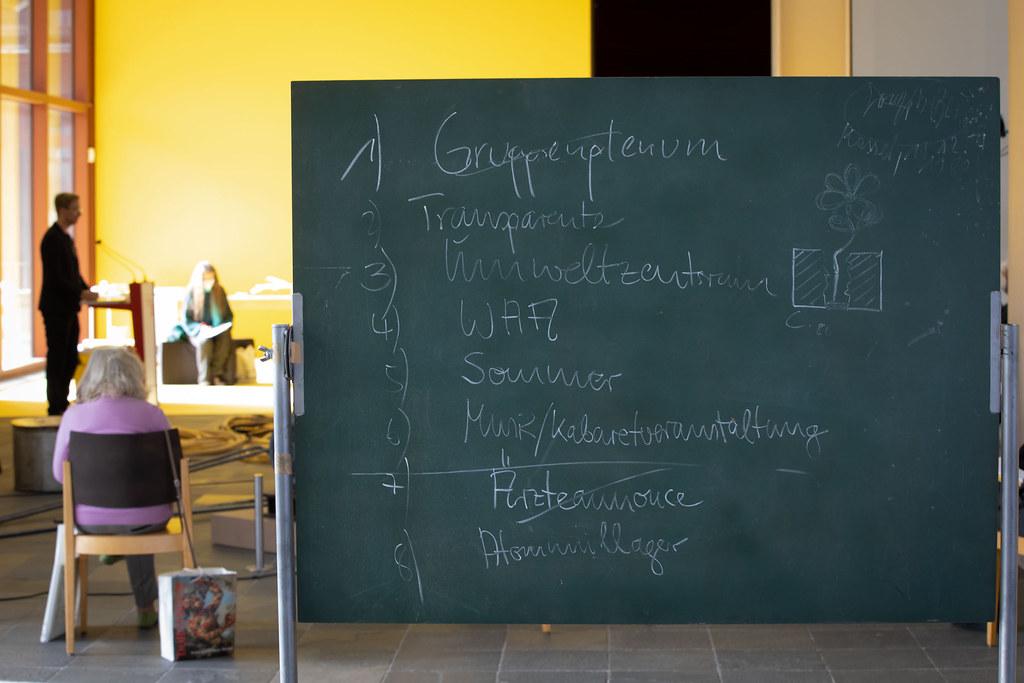 1) Gruppenplenum
2) Transparente
3) Umweltzentrum
4) WAA
5) Sommer
6) Musik/Kabaretveranstaltung
7) Ärzteannonce
8) Atommüllager